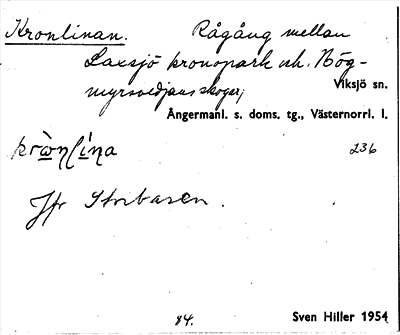 Kronlinan. Rågång mellan
Laxsjö kronopark och Hög-
myrsvedjans skogar,
Viksjö sn.
Ångermanl. s. doms. tg., Västernorrl. l.
236
Jfr Storbasen.
84. Sven Hiller 1954